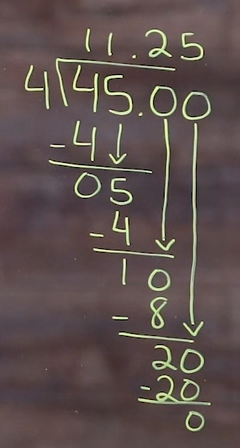 11.25
4)45.00
-4
05
-4
10
-8
20
-20
0